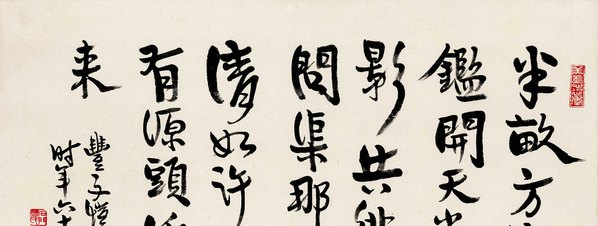 半畝方
鑑開天
影共
問渠那
清如許
有源頭
来
豐子愷
时年六